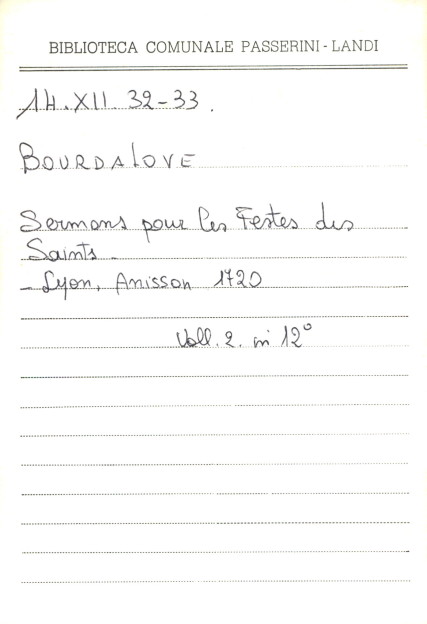 BIBLIOTECA COMUNALE PASSERINI - LANDI
14.XII. 32-33.
BOURDALOVE
Sermons pour les Festes des
Saints.
- Lyon, Anisson 1720
Voll. 2. in 12°